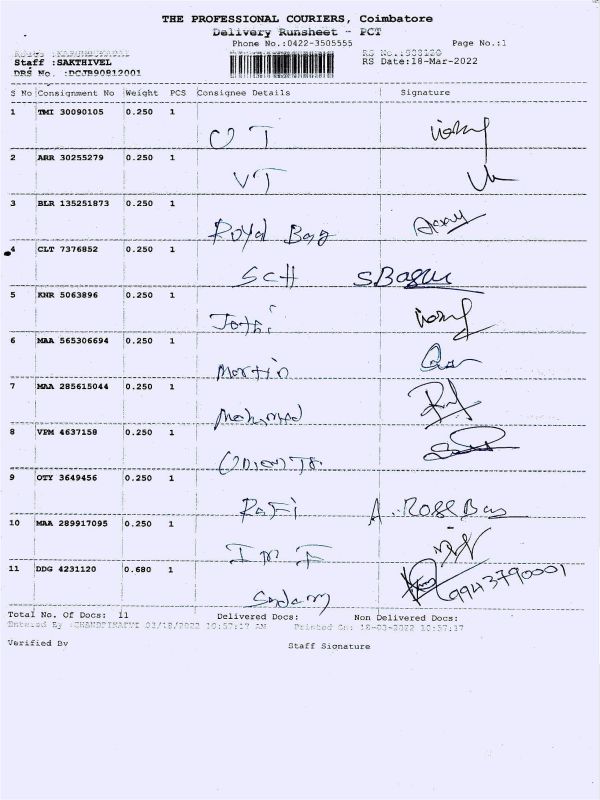 THE PROFESSIONAL COURIERS, Coimbatore
Delivery Runsheet - PCT
Phone No.:0422-3505555 Page No.:1
Staff :SAKTHIVEL RS Date:18-Mar-2022
DRS No. :DCJB90812001
S No Consignment No Weight PCS Consignee Details Signature
1 TMI 30090105 0.250 1
2 ARR 30255279 0.250 1
VT
3 BLR 135251873 0.250 1
Royal Bag
4 CLT 7376852 0.250 1
SCH
5 KNR 5063896 0.250 1
Jothi
6 MAA 565306694 0.250 1
Martin
7 MAA 285615044 0.250 1
Mohamad
8 VPM 4637158 0.250 1
9 OTY 3649456 0.250 1
Rafi A. Rose Bag
10 MAA 289917095 0.250 1
11 DDG 4231120 0.680 1
9943790001
Total No. Of Docs: 11 Delivered Docs: Non Delivered Docs:
03/18/2022 10:57:17 AM Printed On: 18-03-2022 10:57:17
Verified By Staff Signature